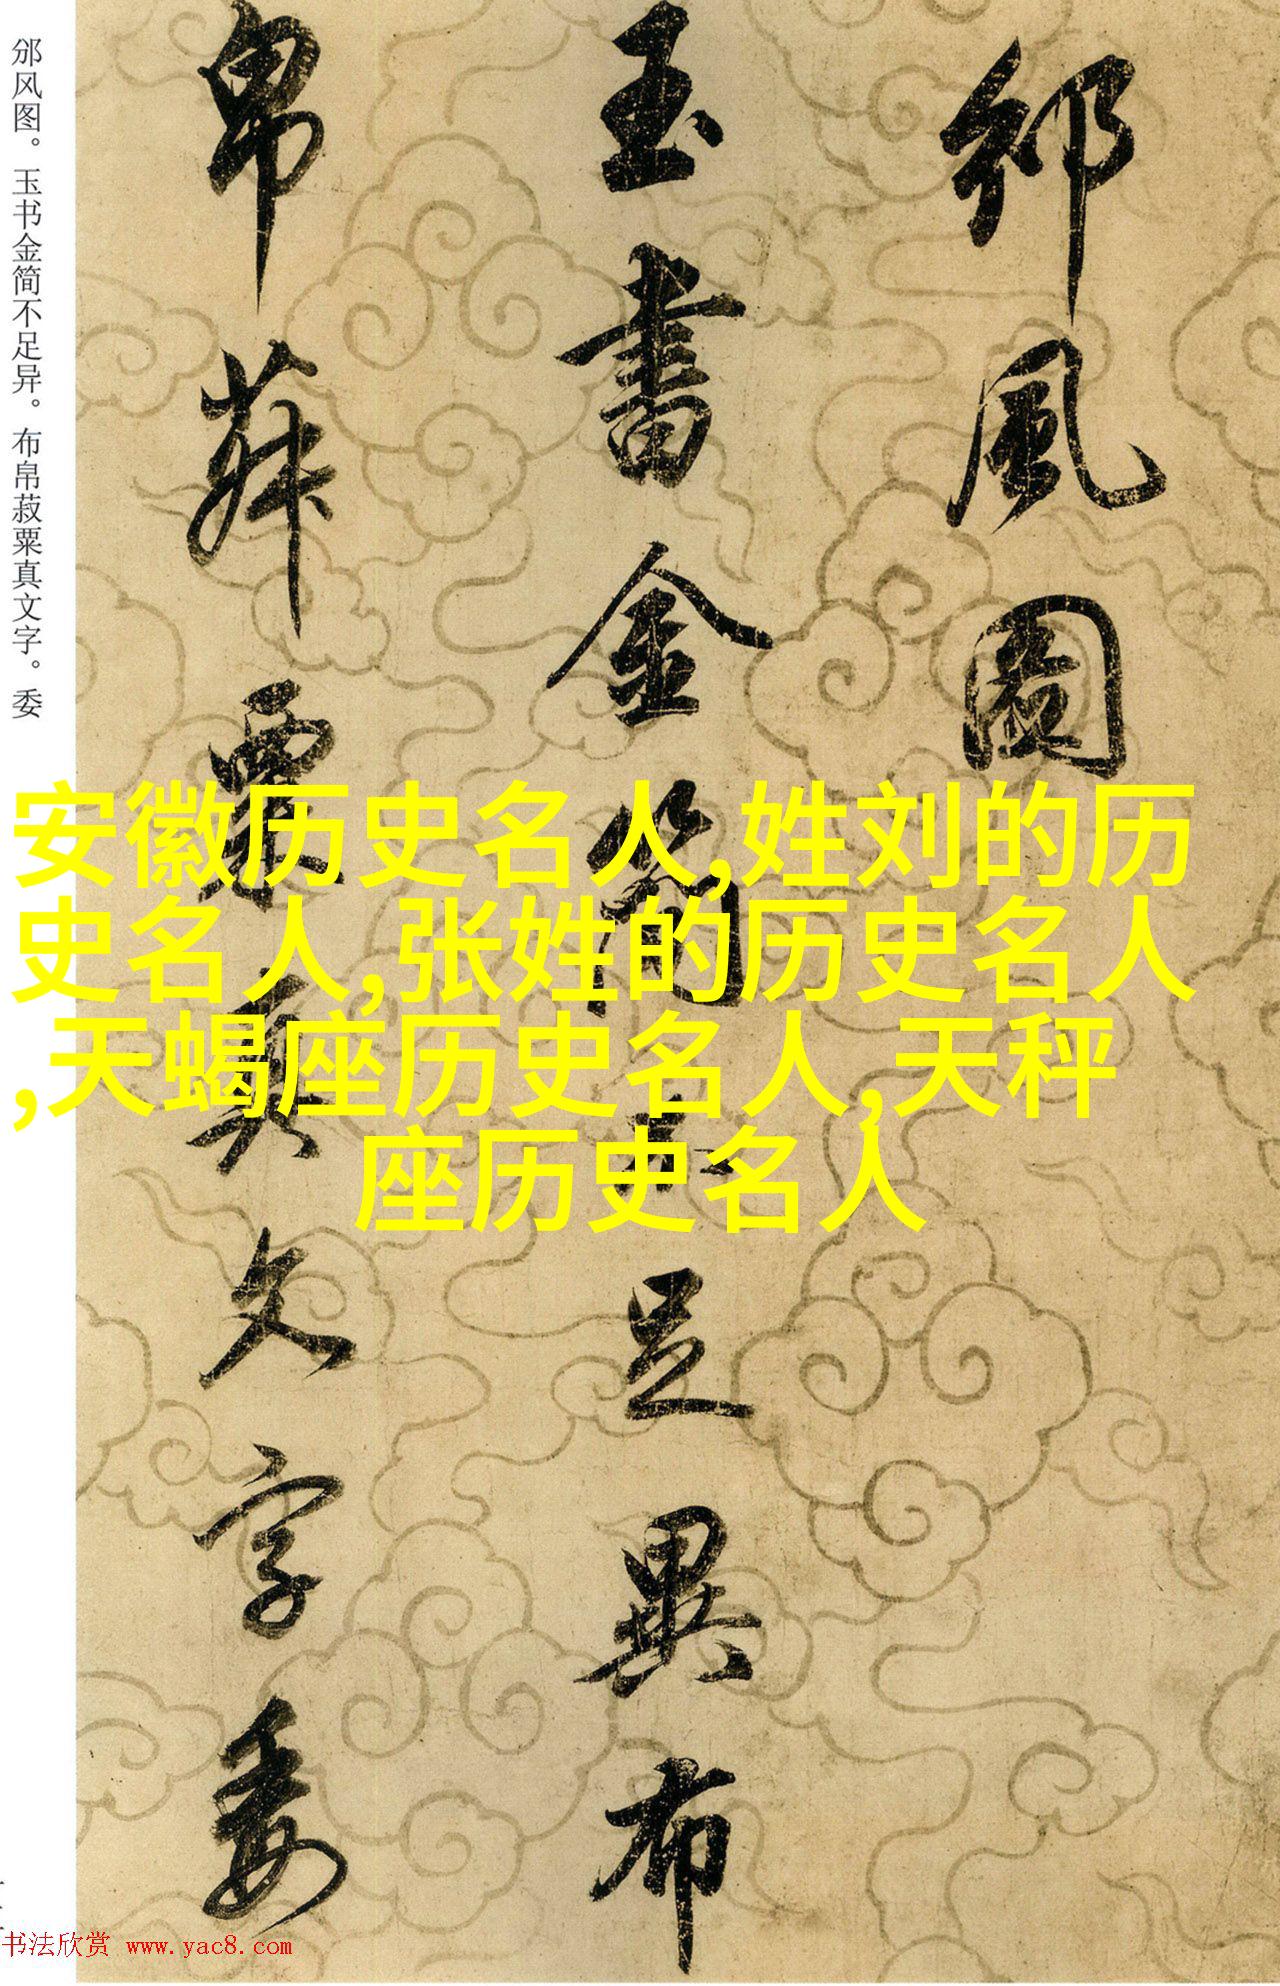 邠风图。玉书金简不足异。布帛菽粟真文字。委
邠風圖
玉書金簡不足異布
帛菽粟真文字委
安徽历史名人,姓刘的历
史名人,张姓的历史名人
,天蝎座历史名人,天秤
座历史名人
书法欣赏 www.yac8.com